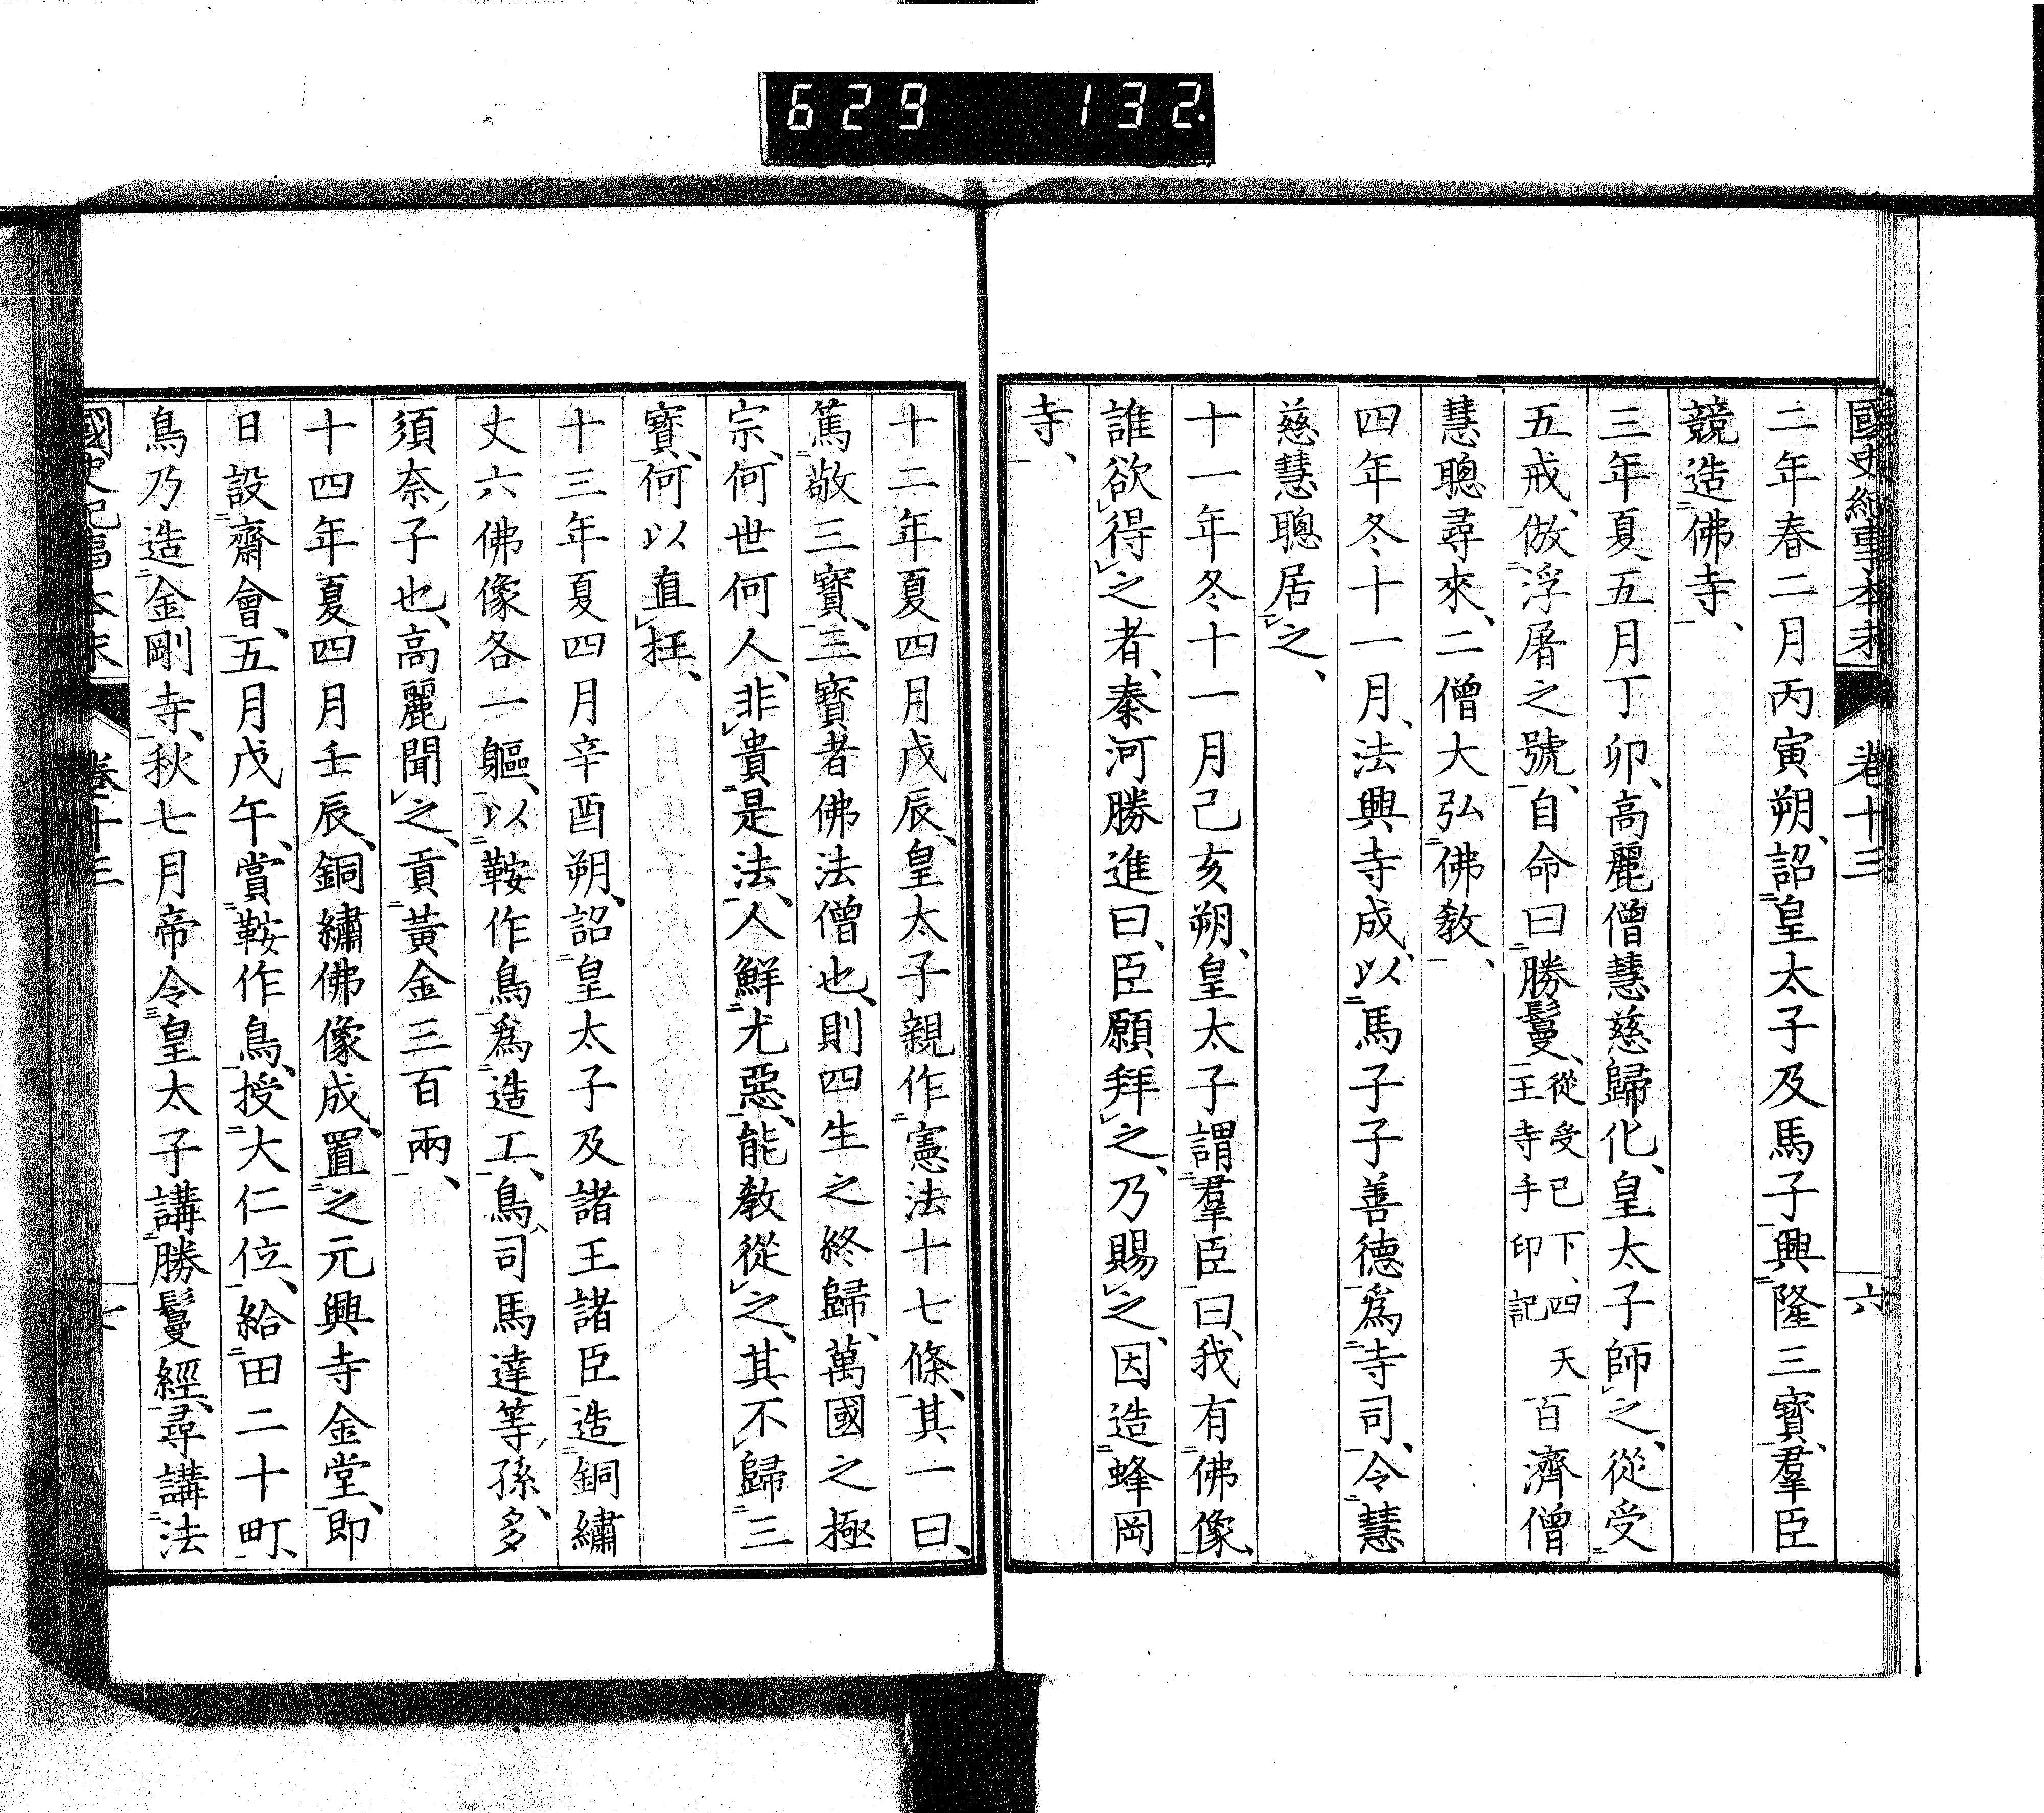 629 132.
國史紀事本末 卷十三 六
二年春二月丙寅朔、詔皇太子及馬子興隆三寶、羣臣
競造佛寺、
三年夏五月丁卯、高麗僧慧慈歸化、皇太子師之、從受
五戒、倣浮屠之號、自命曰勝鬘、從受已下、四天王寺手印記百濟僧
慧聰尋來、二僧大弘佛教、
四年冬十一月、法興寺成、以馬子子善德爲寺司、令慧
慈慧聰居之、
十一年冬十一月己亥朔、皇太子謂羣臣曰、我有佛像、
誰欲得之者、秦河勝進曰、臣願拜之、乃賜之、因造蜂岡
寺、
十二年夏四月戊辰、皇太子親作憲法十七條、其一曰、
篤敬三寶、三寶者佛法僧也、則四生之終歸、萬國之極
宗、何世何人、非貴是法、人鮮尤惡、能教從之、其不歸三
寶、何以直枉、
十三年夏四月辛酉朔、詔皇太子及諸王諸臣造銅繡
丈六佛像各一軀、以鞍作鳥爲造工、鳥、司馬達等孫、多
須奈子也、高麗聞之、貢黃金三百兩、
十四年夏四月壬辰、銅繡佛像成、置之元興寺金堂、即
日設齋會、五月戊午、賞鞍作鳥、授大仁位、給田二十町、
鳥乃造金剛寺、秋七月帝令皇太子講勝鬘經、尋講法
國史紀事本末 卷十三 七